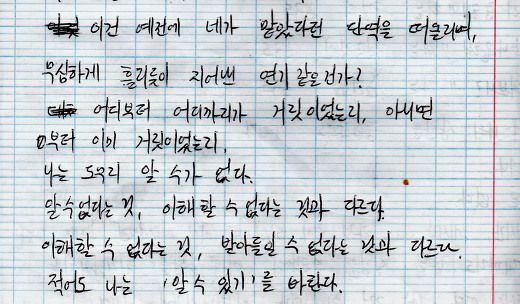 이건 예전에 네가 맡았다던 단역을 떠올리며,
무심하게 흘리듯이 지어낸 연기 같은건가?
어디부터 어디까지가 거짓이었는지, 아니면
부터 이미 거짓이었는지,
나는 도무지 알 수가 없다.
알 수 없다는 것, 이해할 수 없다는 것과 다르다.
이해할 수 없다는 것, 받아들일 수 없다는 것과 다르다.
적어도 나는 '알 수 있기'를 바란다.